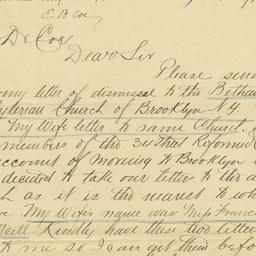 E. B. Coe
Dr Coe
Dear Sir
Please send
my letter of dismissal to the Bethany
byterian Church of Brooklyn N.Y.
My Wife letter to same Church.
members of the 34 Street Reformed
account of moving to Brooklyn
decided to take our letter to the a
ch as it is the nearest to wh
e My Wifes name was Miss Franc
Neill. Kindly have these two letter
to me so I can get them befo